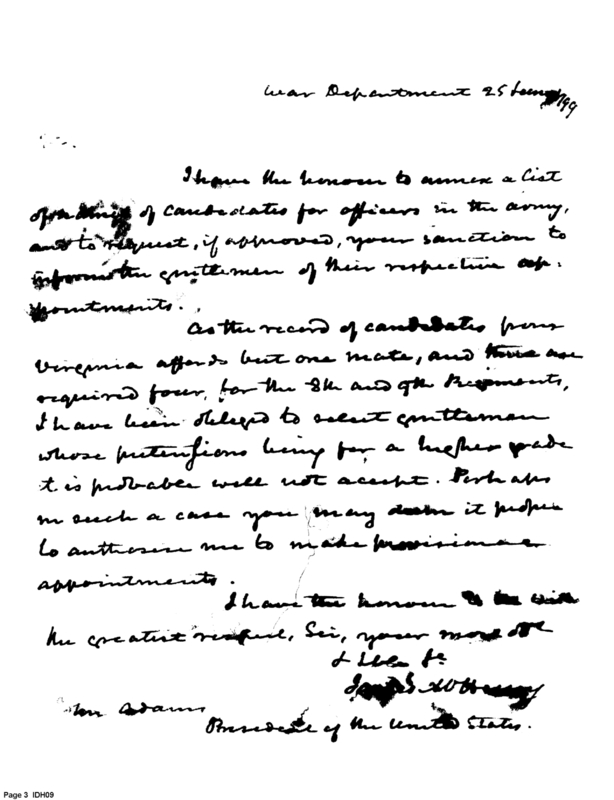 War Department 25 June 99
I have the honour to annex a list
of candidates for officers in the army,
and to request, if approved, your sanction to
inform the gentlemen of their respective ap-
pointments.
As the record of candidates from
Virginia affords but one mate, and there are
required four, for the 8th and 9th Regiments,
I have been obliged to select gentlemen
whose pretensions being for a higher grade
it is probable will not accept. Perhaps
in such a case you may deem it proper
to authorise me to make provisional
appointments.
I have the honour to be with
the greatest respect, Sir, your most obt
& hble St
James McHenry
John Adams
President of the United States.
Page 3 IDH09